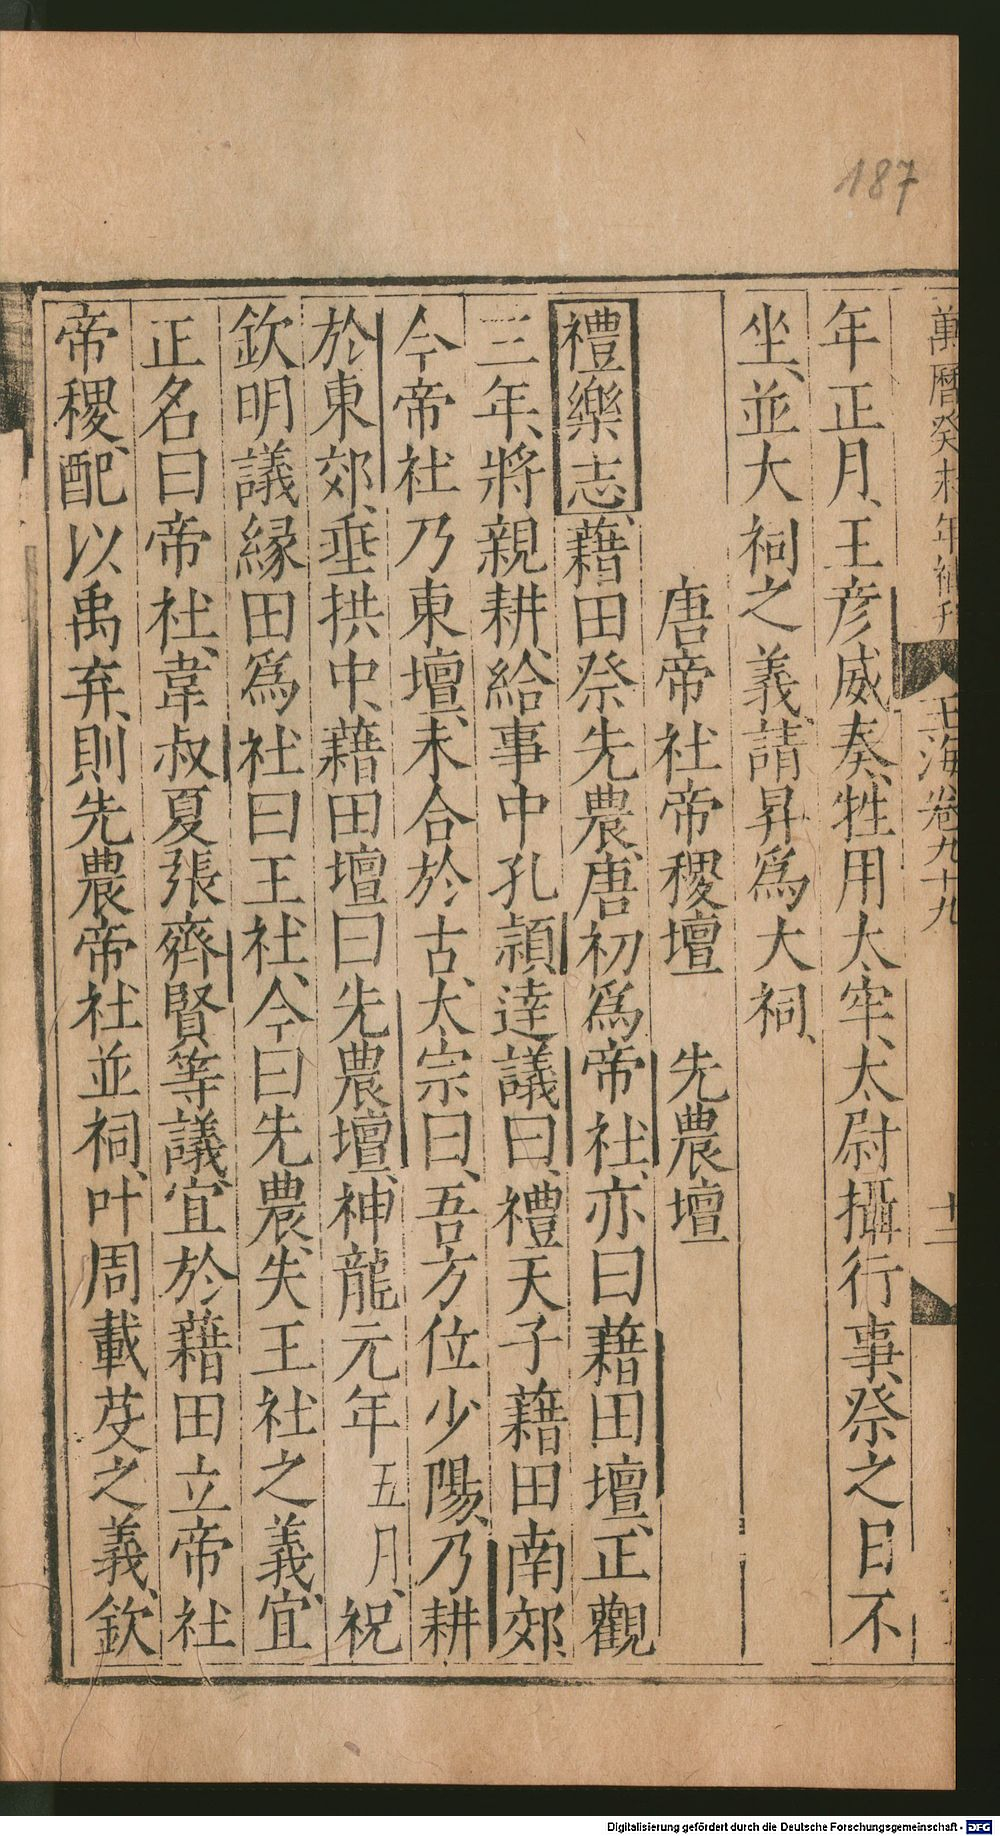 187
萬曆癸未年補刊
玉海卷九十九
十二
年正月、王彦威奏、牲用太牢、太尉攝行事、祭之日不
坐、並大祠之義、請昇爲大祠、
唐帝社帝稷壇 先農壇
禮樂志、藉田祭先農、唐初爲帝社、亦曰藉田壇、正觀
三年、將親耕、給事中孔穎達議曰、禮天子藉田南郊
今帝社乃東壇、未合於古、太宗曰、吾方位少陽、乃耕
於東郊、垂拱中、藉田壇曰先農壇、神龍元年五月、祝
欽明議緣田爲社曰王社、今曰先農、失王社之義、宜
正名曰帝社、韋叔夏張齊賢等議、宜於藉田立帝社
帝稷、配以禹弃、則先農帝社並祠、叶周載芟之義、欽
Digitalisierung gefördert durch die Deutsche Forschungsgemeinschaft - DFG